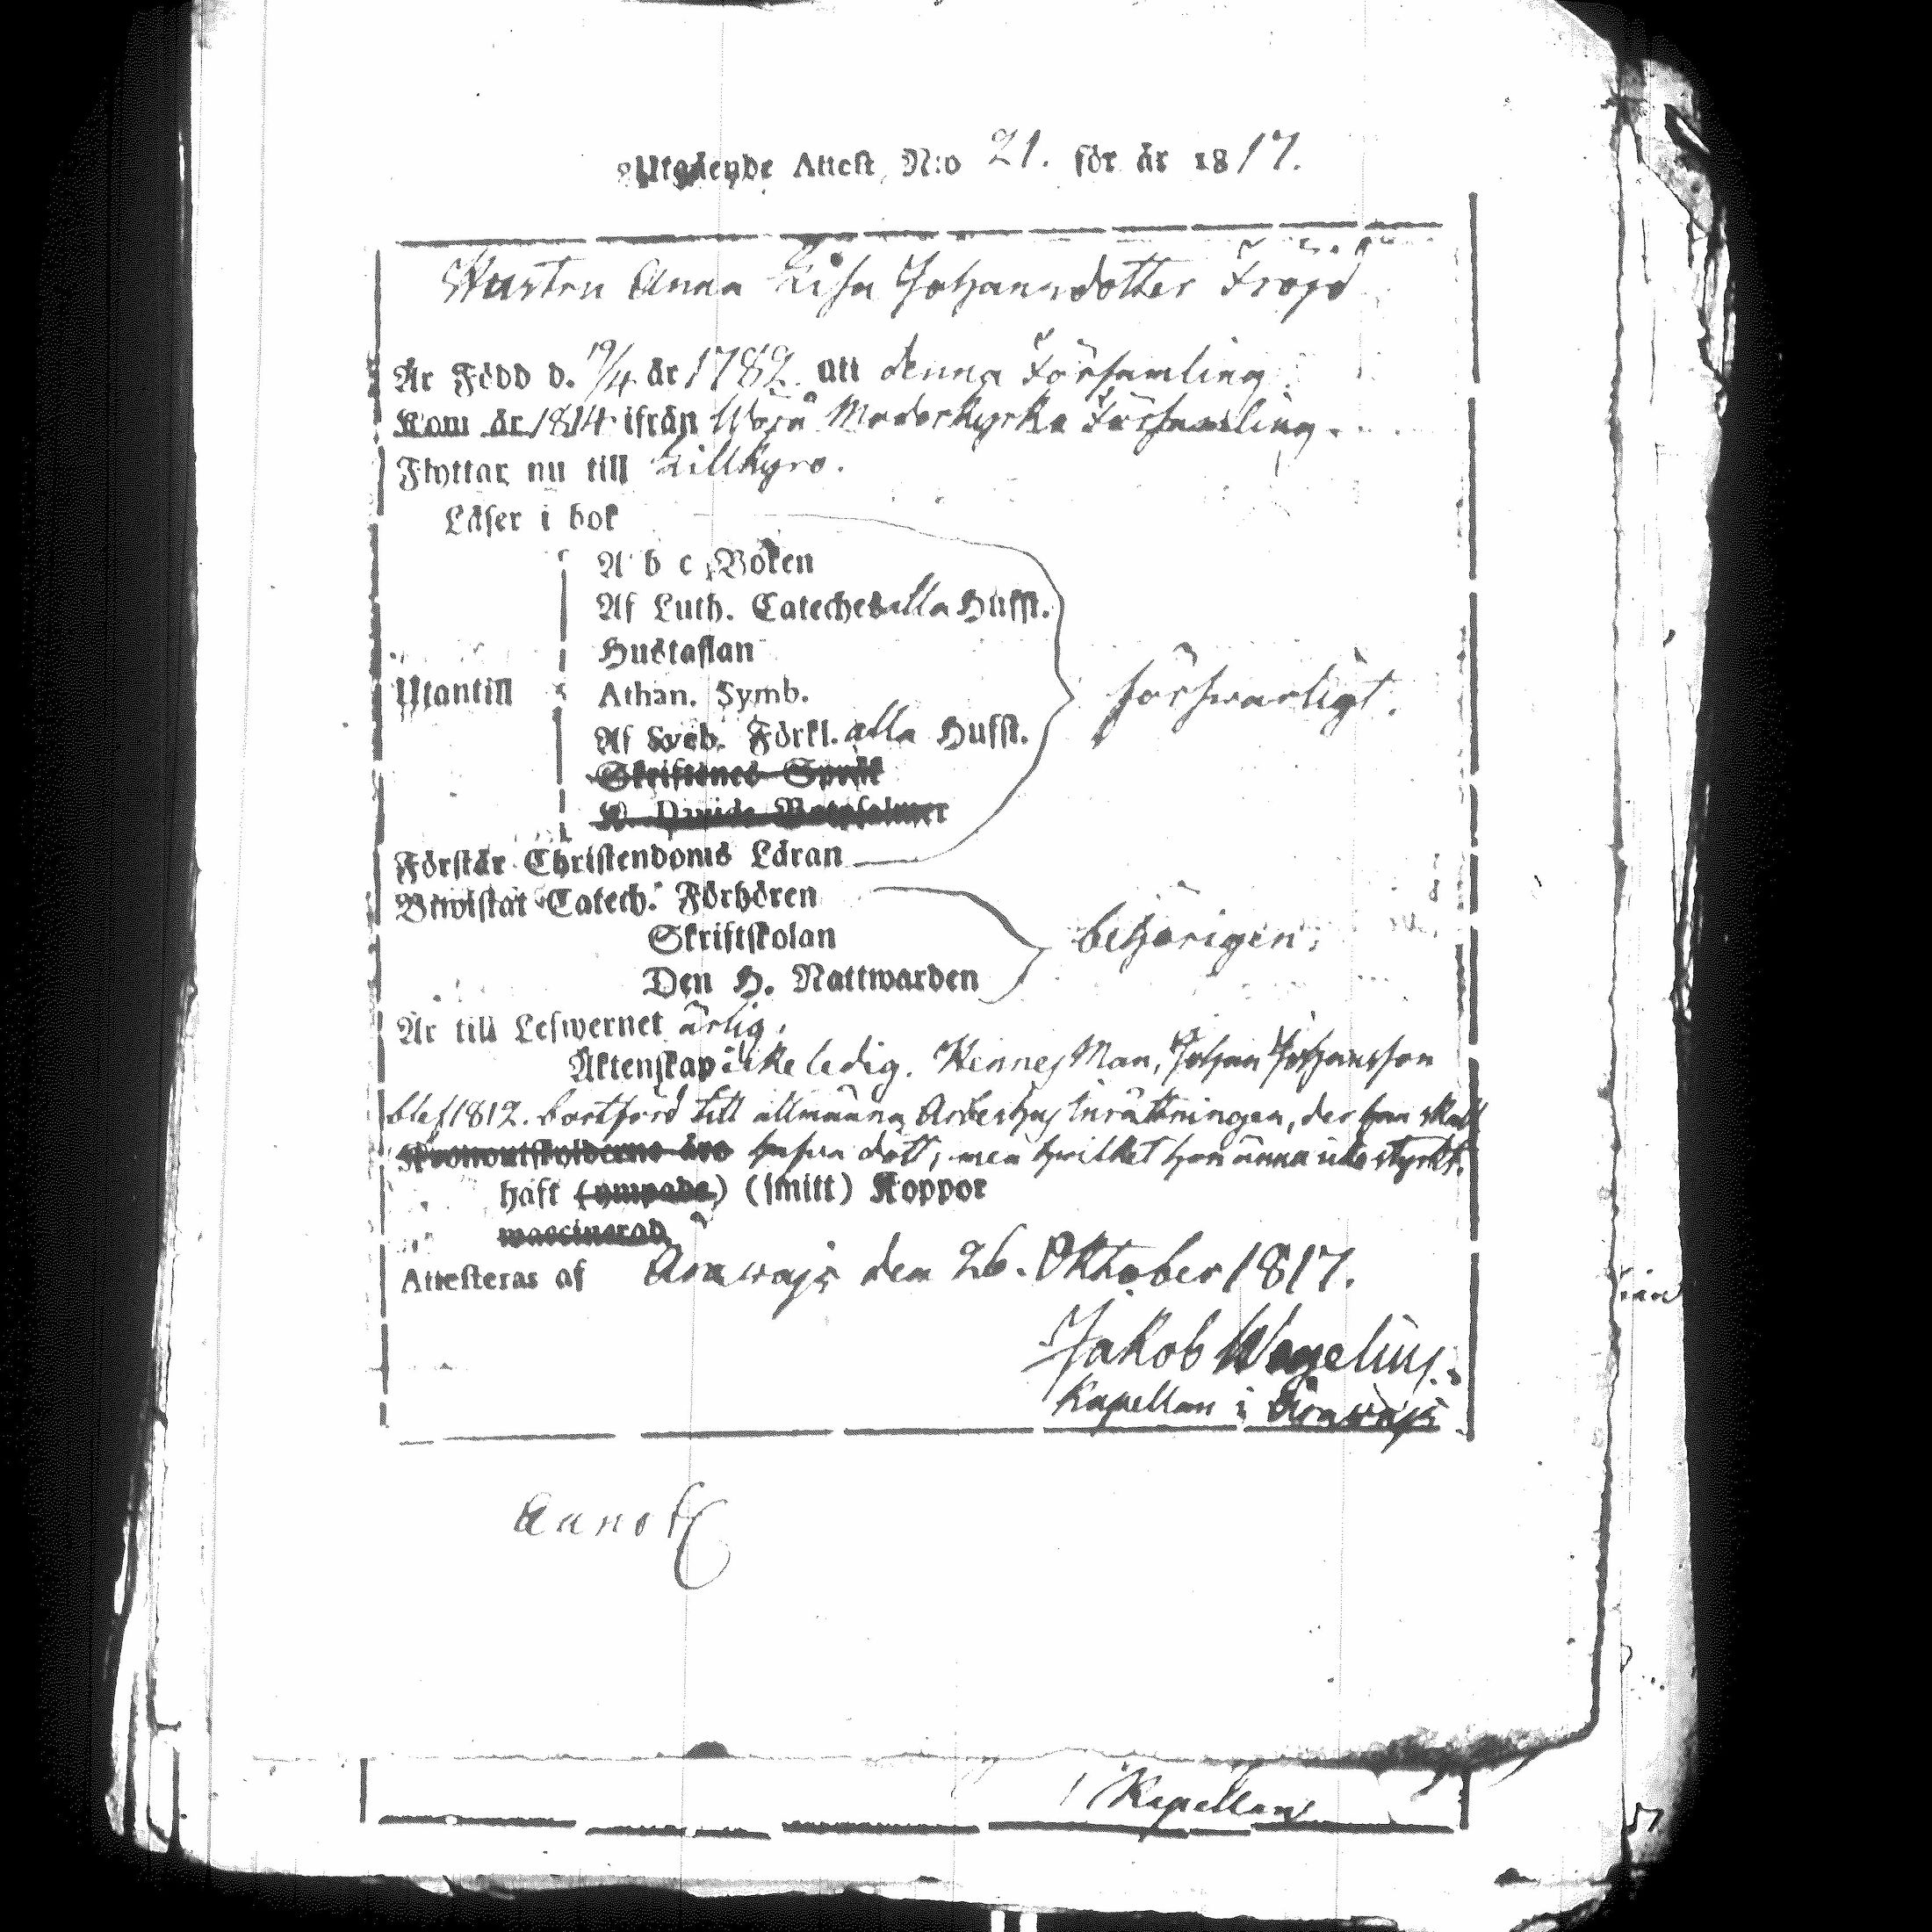 Utgående Attest N:o 21. för år 1817.
Hustru Anna Lisa Johansdotter Fröjd
Är Född d. 19/4 år 1782 att denna Församling.
Kom år 1814 ifrån Wörå Moderkyrko Församling.
Flyttar nu till Lillkyro.
Läser i bok
A b c Boken
Af Luth. Cateches alla Hufst.
Hustaflan
Utantill Athan. Symb. försvarligt.
Af Sveb. Förkl. alla Hufst.
Skriftenes Språk
K. Davids Botpsalmer
Förstår Christendoms Läran
Biwistat Catech. Förhören
Skriftskolan behörigen.
Den H. Nattwarden
Är till Lefwernet ärlig.
Äktenskap icke ledig. Hennes Man, Johan Johansson
blef 1812. bortförd till allmänna Arbetshus Inrättningen, der han skall
hafva dött, men hvilket hon ännu icke styrkt.
haft (ympade) (smitt) Koppor
waccinerad
Attesteras af Orawajs den 26. Oktober 1817.
Jakob Wegelius.
Kapellan i Orawajs
Kapellan